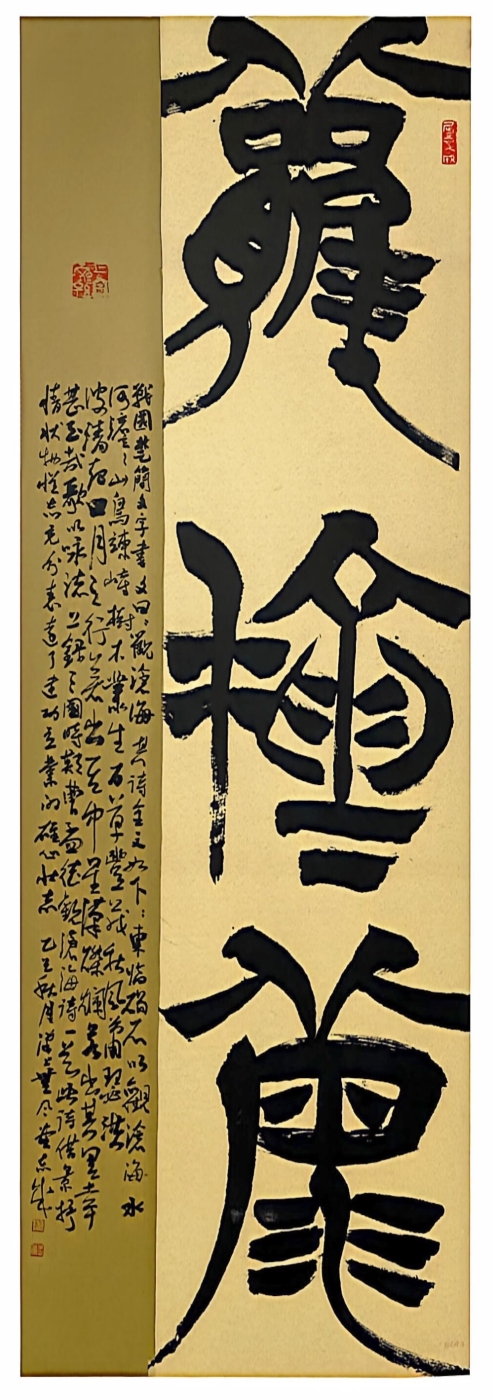 觀滄海
戰國楚簡文字書文曰：觀滄海其詩全文如下：東臨碣石以觀滄海水
何澹々山島竦峙樹木叢生百草豐茂秋風蕭瑟洪
波涌起日月之行若出其中星漢燦爛若出其里幸
甚至哉歌以咏志上錄三國時期曹孟德觀滄海詩一首此詩借景抒
情狀物性志充分表達了建功立業的雄心壯志乙巳秋月